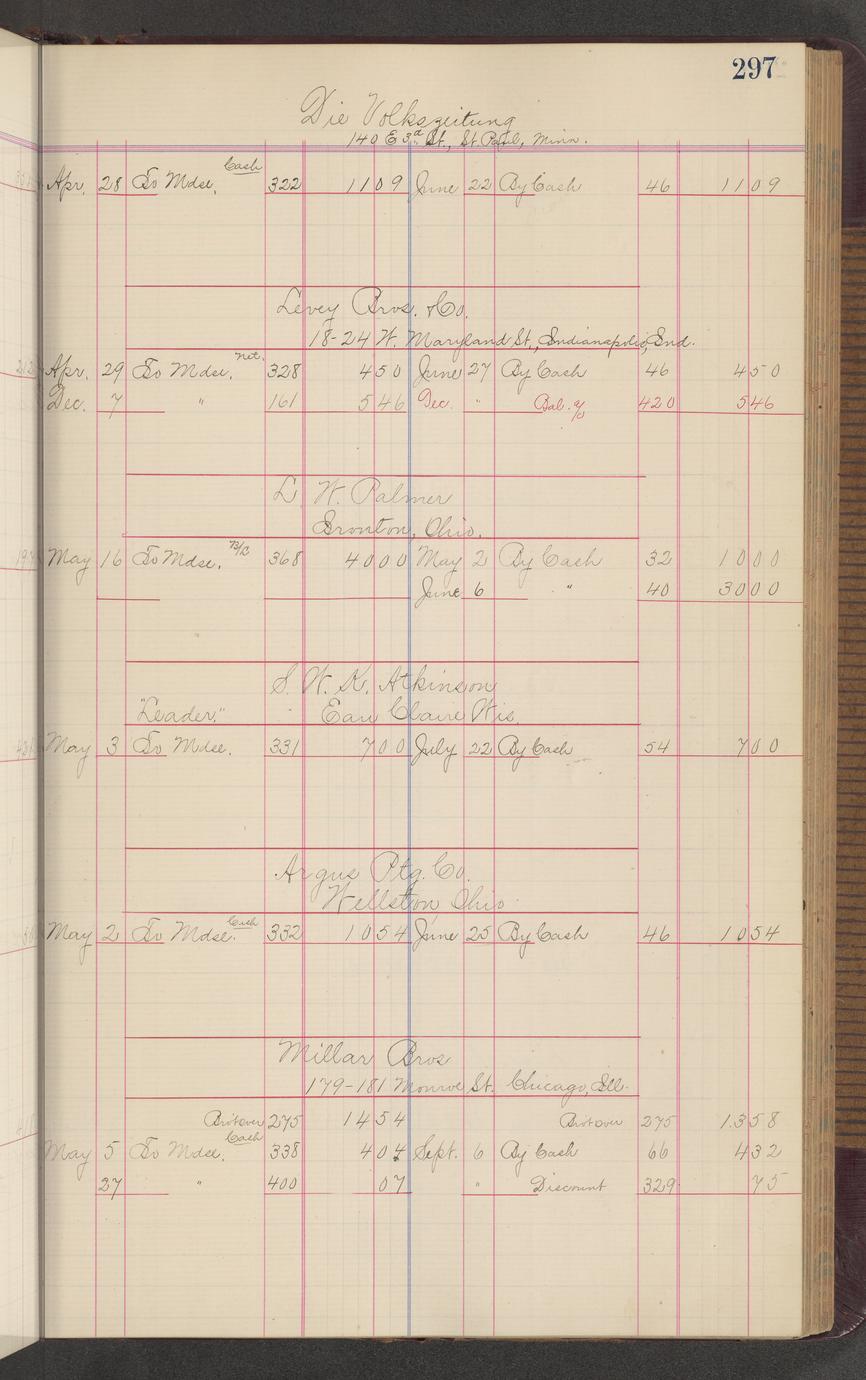 297
Die Volkszeitung
140 E 3rd St., St. Paul, Minn.
Cash
Apr. 28 To Mdse. 322 11 09 June 22 By Cash 46 11 09
Levey Bros. & Co.
18-24 W. Maryland St., Indianapolis, Ind.
net.
Apr. 29 To Mdse. 328 4 50 June 27 By Cash 46 4 50
Dec. 7 " 161 5 46 Dec. " Bal. % 420 5 46
L. W. Palmer
Ironton, Ohio.
May 16 To Mdse. 368 40 00 May 2 By Cash 32 10 00
June 6 " 40 30 00
S. W. K. Atkinson
"Leader." Eau Claire Wis.
May 3 To Mdse. 331 7 00 July 22 By Cash 54 7 00
Argus Ptg. Co.
Wellston Ohio
Cash
May 2 To Mdse. 332 10 54 June 25 By Cash 46 10 54
Millar Bros
179-181 Monroe St. Chicago, Ill.
Brot over 275 14 54 Brot over 275 13 58
Cash
May 5 To Mdse. 338 4 04 Sept. 6 By Cash 66 4 32
27 " 400 07 " Discount 329 75